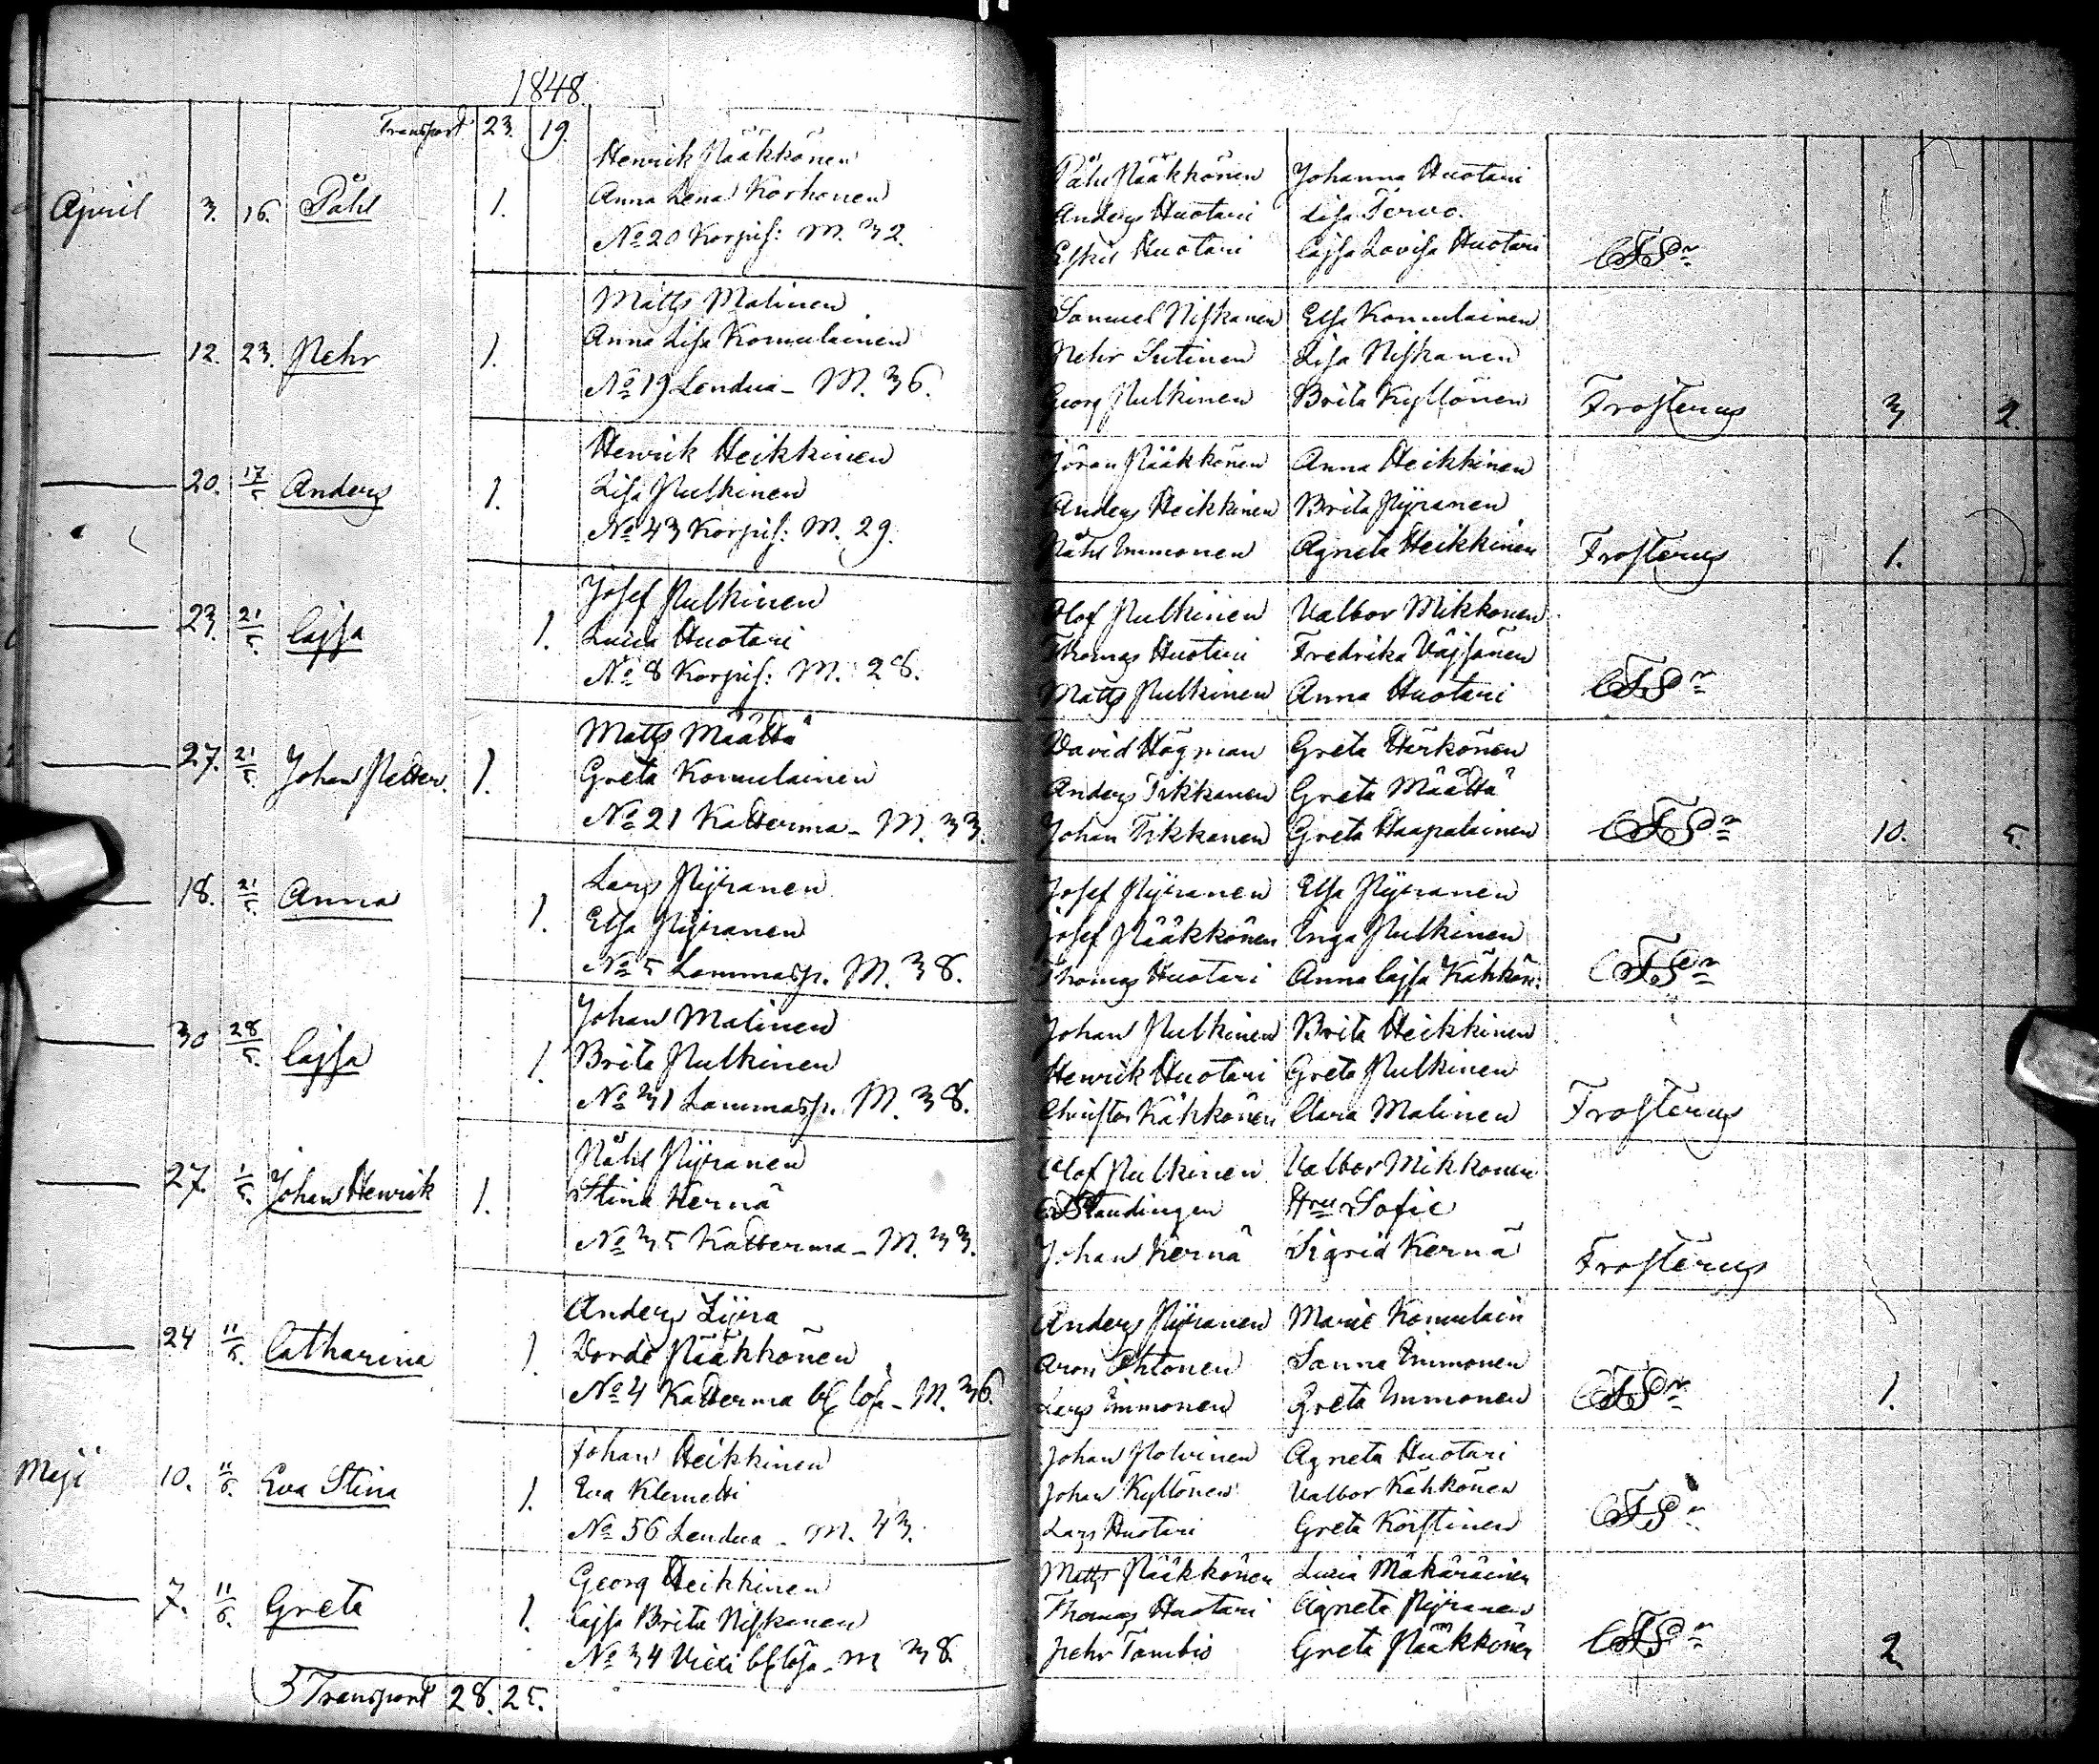 1848.
Transport 23. 19.
Henrik Pääkkönen
April 3. 16. Påhl 1. Anna Lena Korhonen
No 20 Korpis: M. 32.
Påhl Pääkkönen Johanna Huotari
Anders Huotari Lisa Tervo.
Eskil Huotari Cajsa Lovisa Huotari
Matts Malinen
12. 23. Pehr 1. Anna Lisa Komulainen
No 19 Lendua - M. 36.
Samuel Niskanen Elsa Komulainen
Pehr Sutinen Lisa Niskanen
Georg Pulkinen Brita Kyllönen Frosterus 3 2.
Henrik Heikkinen
20. 17/5 Anders 1. Lisa Pulkinen
No 43 Korpis: M. 29.
Jöran Pääkkönen Anna Heikkinen
Anders Heikkinen Brita Pyranen
Påhl Immonen Agneta Heikkinen Frosterus 1.
Josef Pulkinen
23. 21/5. Cajsa 1. Lucia Huotari
No 8 Korpis: M. 28.
Olof Pulkinen Valbor Mikkonen
Thomas Huotari Fredrika Väisänen
Matts Pulkinen Anna Huotari
Matts Määttä
27. 21/5. Johan Petter. 1. Greta Komulainen
No 21 Katterma - M. 33.
David Högman Greta Härkönen
Anders Tikkanen Greta Määttä
Johan Tikkanen Greta Haapalainen 10. 5.
Lars Pyranen
18. 21/5. Anna 1. Elsa Pyranen
No 5 Lammasp. M. 38.
Josef Pyranen Elsa Pyranen
Josef Pääkkönen Inga Pulkinen
Thomas Huotari Anna Cajsa Kähkön:
Johan Malinen
30 28/5. Cajsa 1. Brita Pulkinen
No 31 Lammasp. M. 38.
Johan Pulkinen Brita Heikkinen
Henrik Huotari Greta Pulkinen
Christer Kähkönen Clara Malinen Frosterus
Påhl Pyranen
27. 1/5. Johan Henrik 1. Stina Kernä
No 35 Katterma - M. 33.
Olof Pulkinen Valbor Mikkonen
Standingen Hru Sofie
Johan Kernä Sigrid Kernä Frosterus
Anders Lyra
24 11/6. Catharina 1 Vorde Pääkkönen
No 4 Katterma - M. 36.
Anders Pyranen Marie Komulain
Aron Ohtonen Sanna Immonen
Lars Immonen Greta Immonen 1.
Johan Heikkinen
Maji 10. 11/6. Eva Stina 1. Eva Klemetti
No 56 Lendua - M. 43.
Johan Polvinen Agneta Huotari
Johan Kyllönen Valbor Kähkönen
Lars Huotari Greta Koistinen
Georg Heikkinen
7. 11/6. Greta 1. Cajsa Brita Niskanen
No 34 Vieki - M 38.
Matts Pääkkönen Lucia Mäkäräinen
Thomas Huotari Agneta Pyranen
Pehr Tambis Greta Pääkkönen 2.
Transport 28. 25.